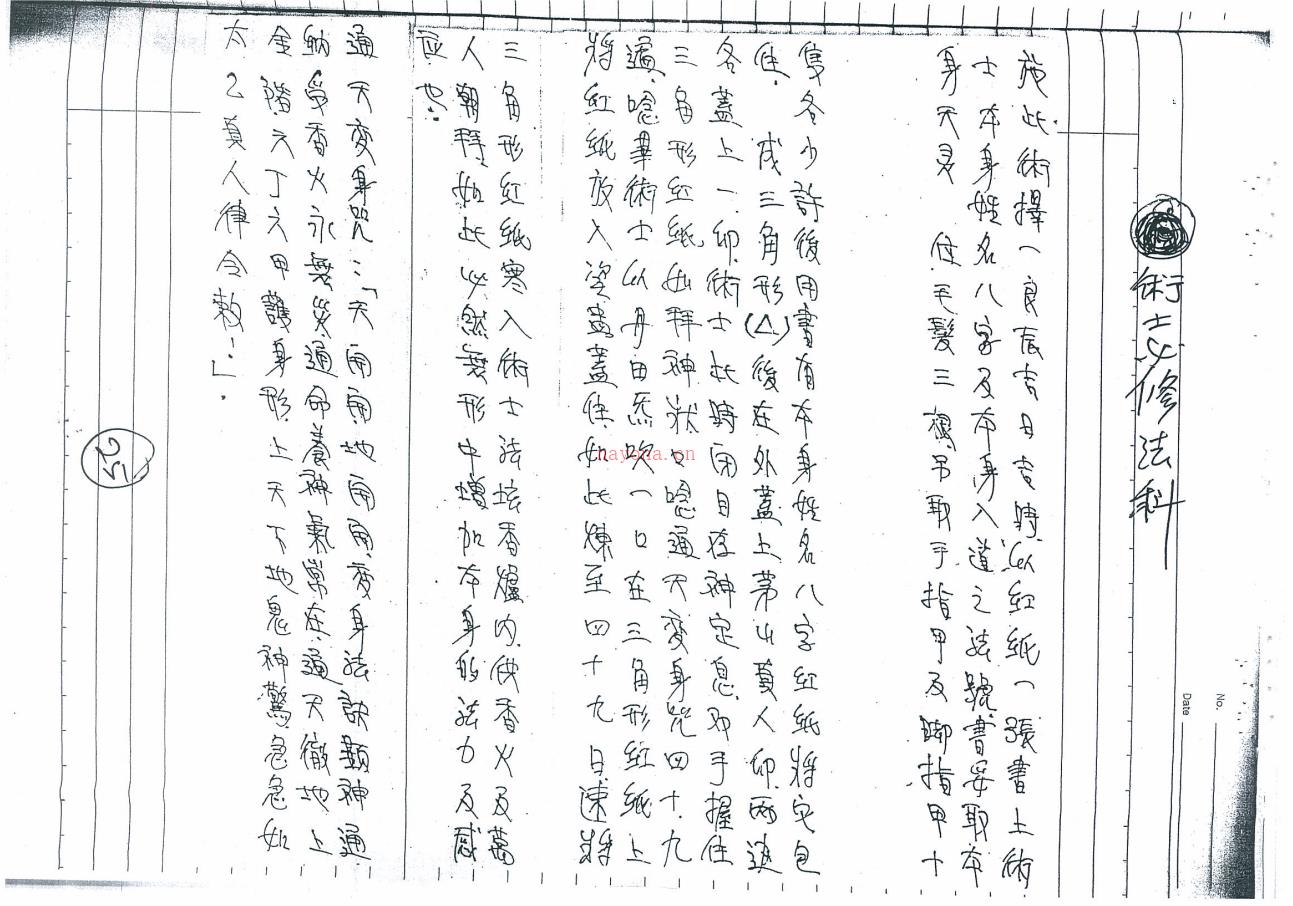 術士必修法科
施此術擇一良辰吉日吉時,以紅紙一張書上術
士本身姓名八字及本身入道之法號,書妥取本
身天灵 住毛髮三 吊取手指甲及脚指甲十
隻各少許後用書有本身姓名八字紅紙將它包
住. 成三角形(△)後在外蓋上茅山真人印,兩邊
各蓋上一印,術士此時闭目存神定息,双手握住
三角形紅紙如拜神狀,口唸通天变身咒四十九
遍,唸畢術士以丹田炁吹一口在三角形紅紙上
將紅紙放入 蓋住,如此煉至四十九日,速將
三角形紅紙塞入術士法坛香爐內,供香火及萬
人朝拜,如此必然無形中增加本身的法力及感
应也.
通天变身咒:「天雨雨地雨雨,变身法訣顯神通
納受香火永無災,通命養神氣常在,通天徹地上
金階,六丁六甲護身形,上天下地鬼神驚,急急如
太乙真人律令敕!」.
25
No.
Date
nayona.cn